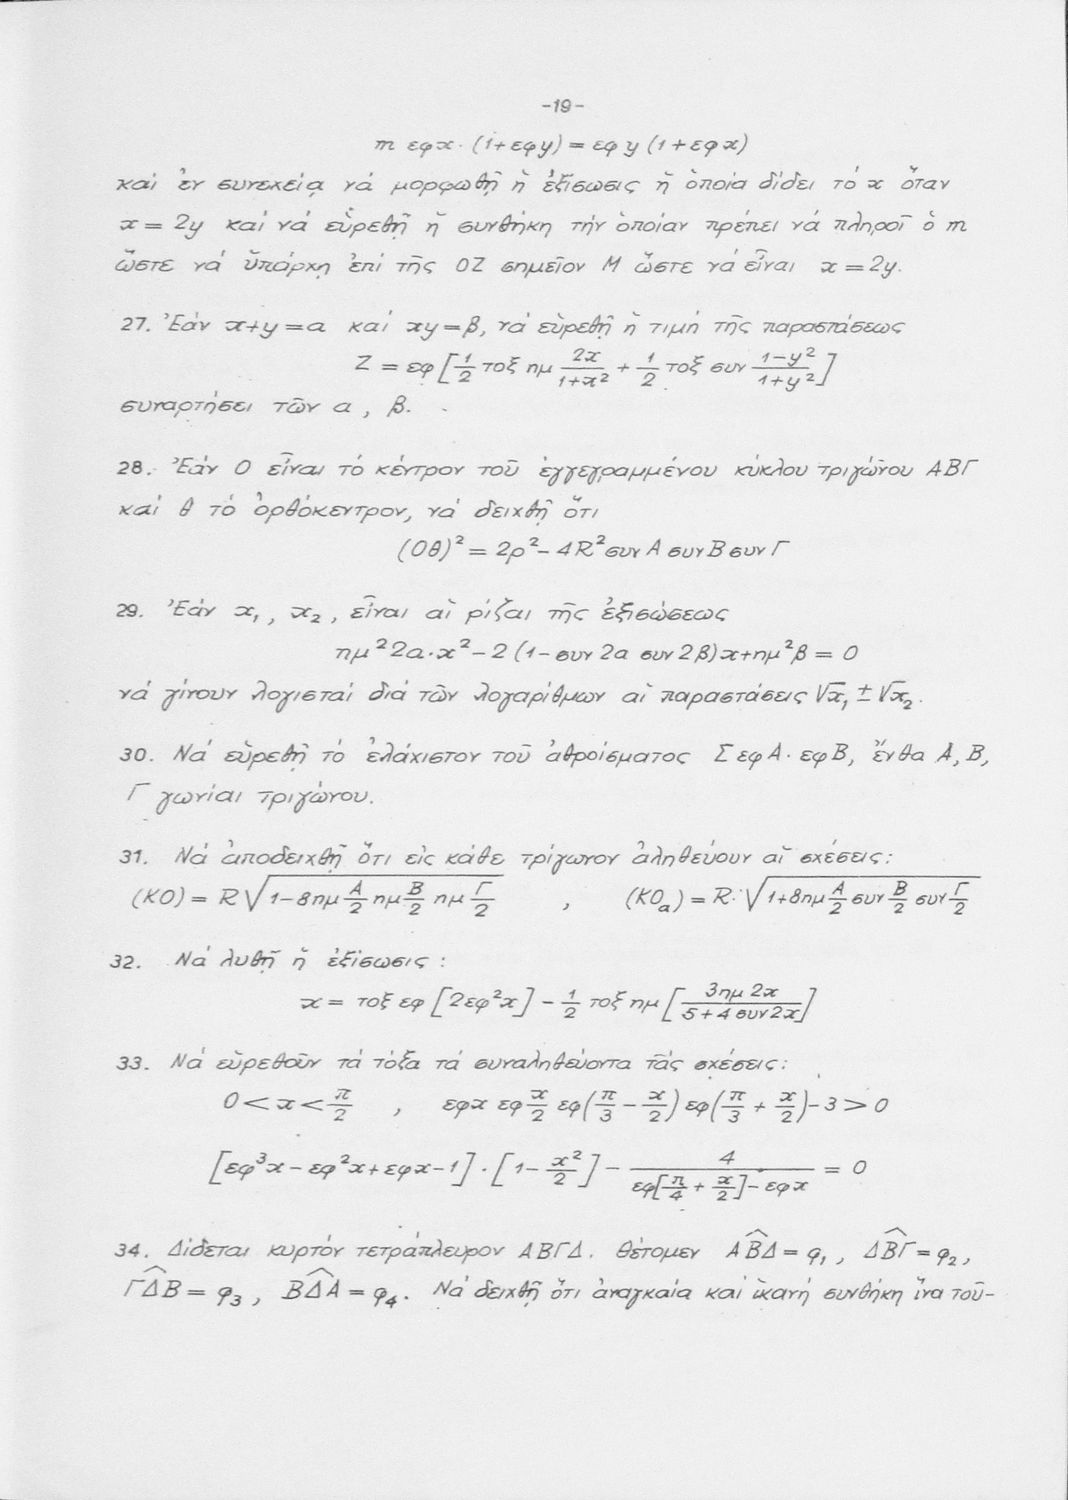 -19-
m εφx · (1+εφy) = εφy (1+εφx)
καί ἐν συνεχείᾳ νά μορφωθῇ ἡ ἐξίσωσις ἡ ὁποία δίδει τό x ὅταν
x = 2y καί νά εὑρεθῇ ἡ συνθήκη τήν ὁποίαν πρέπει νά πληροῖ ὁ m
ὥστε νά ὑπάρχῃ ἐπί τῆς ΟΖ σημεῖον Μ ὥστε νά εἶναι x = 2y.
27. Ἐάν x+y = α καί xy = β, νά εὑρεθῇ ἡ τιμή τῆς παραστάσεως
Z = εφ [ 1/2 τοξ ημ 2x/(1+x²) + 1/2 τοξ συν (1-y²)/(1+y²) ]
συναρτήσει τῶν α , β.
28. Ἐάν Ο εἶναι τό κέντρον τοῦ ἐγγεγραμμένου κύκλου τριγώνου ΑΒΓ
καί θ τό ὀρθόκεντρον, νά δειχθῇ ὅτι
(Οθ)² = 2ρ² - 4R² συν Α συν Β συν Γ
29. Ἐάν x₁ , x₂ , εἶναι αἱ ρίζαι τῆς ἐξισώσεως
ημ²2α · x² - 2 (1 - συν 2α συν 2β)x + ημ²β = 0
νά γίνουν λογισταί διά τῶν λογαρίθμων αἱ παραστάσεις √x₁ ± √x₂.
30. Νά εὑρεθῇ τό ἐλάχιστον τοῦ ἀθροίσματος Σ εφΑ · εφΒ, ἔνθα Α, Β,
Γ γωνίαι τριγώνου.
31. Νά ἀποδειχθῇ ὅτι εἰς κάθε τρίγωνον ἀληθεύουν αἱ σχέσεις:
(ΚΟ) = R √(1 - 8ημ Α/2 ημ Β/2 ημ Γ/2) , (ΚΟₐ) = R · √(1 + 8ημ Α/2 συν Β/2 συν Γ/2)
32. Νά λυθῇ ἡ ἐξίσωσις :
x = τοξ εφ [2εφ²x] - 1/2 τοξ ημ [ 3ημ 2x/(5+4 συν 2x) ]
33. Νά εὑρεθοῦν τά τόξα τά συναληθεύοντα τάς σχέσεις:
0 < x < π/2 , εφx εφ x/2 εφ(π/3 - x/2) εφ(π/3 + x/2) - 3 > 0
[εφ³x - εφ²x + εφx - 1] · [1 - x²/2] - 4/(εφ[π/4 + x/2] - εφx) = 0
34. Δίδεται κυρτόν τετράπλευρον ΑΒΓΔ. Θέτομεν ΑΒ̂Δ = φ₁ , ΔΒ̂Γ = φ₂ ,
ΓΔ̂Β = φ₃ , ΒΔ̂Α = φ₄. Νά δειχθῇ ὅτι ἀναγκαία καί ἱκανή συνθήκη ἵνα τοῦ-